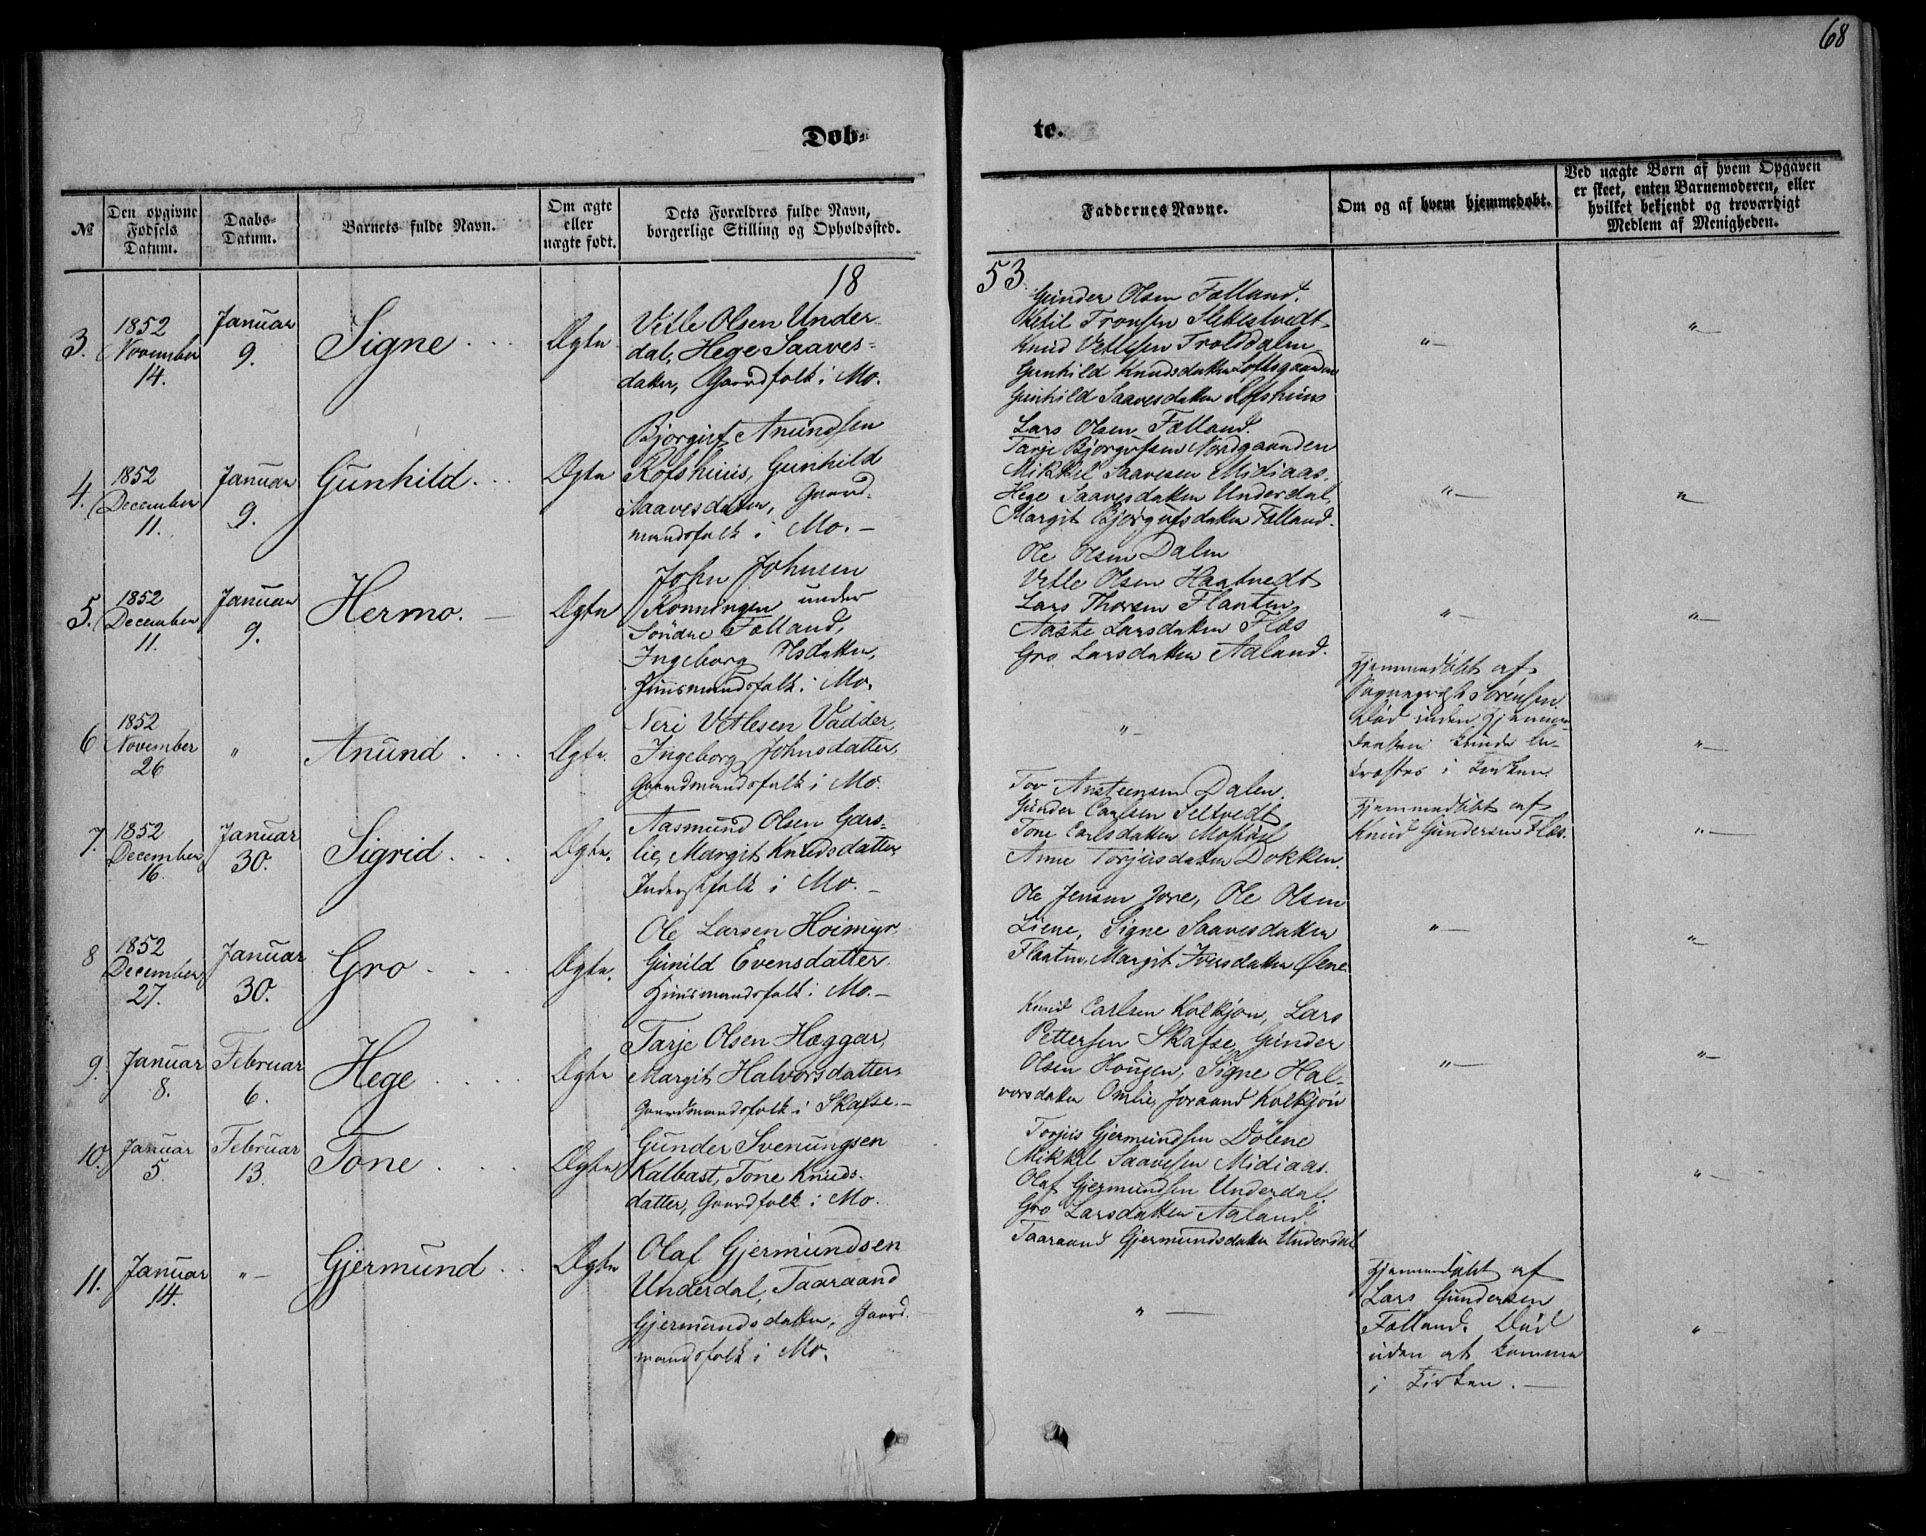 68
Døb-
te.
№
Den opgivne
Fødsels
Datum.
Daabs-
Datum.
Barnets fulde Navn.
Om ægte
eller
uægte født.
Dets Forældres fulde Navn,
borgerlige Stilling og Opholdssted.
Faddernes Navne.
Om og af hvem hjemmedøbt.
Ved uægte Børn af hvem Opgaven
er skeet, enten Barnemoderen, eller
hvilket bekjendt og troværdigt
Medlem af Menigheden.
18
53
3.
1852
November
14.
Januar
9.
Signe
Ægte
Vetle Olsen Under-
dal, Hege Saaves-
datter, Gaardfolk i Mo.
Gunder Olsen Fælland.
Ketil Tronsen
Knud Vetlesen Troldsdalen
Gunhild Knudsdatter Loftsgaarden
Gunhild Saavesdatter Rofshuus
"—
"—
4.
1852
December
11.
Januar
9.
Gunhild
Ægte
Bjorguf Anundsen
Rofshuus, Gunhild
Saavesdatter, Gaard-
mandsfolk i Mo.—
Lars Olsen Fælland.
Tarje Bjorgufsen Nordgaarden
Mikkel Saavesen Midiaas.
Hege Saavesdatter Underdal,
Margit Bjørgufsdatter Fælland.
"—
"
5.
1852
December
11.
Januar
9.
Hermo. —
Ægte
John Johnsen
Rønningen under
Søndre Fælland,
Ingeborg Olsdatter,
Huusmandsfolk i Mo.
Ole Olsen Dalen
Vetle Olsen Haatvedt
Lars Thorsen Flaaten
Aaste Larsdatter Flos
Gro Larsdatter Aaland.
"—
"—
6
1852
November
26
"
Anund
Ægte.
Neri Vetlesen Vadder,
Ingeborg Johnsdatter,
Gaardmandsfolk i Mo.
"—
Hjemmedøbt af
Sørensen.
Død inden Hjemme-
daaben kunde be-
kræftes i Kirken.
"—
7.
1852
December
16.
Januar
30.
Sigrid
Ægte.
Aasmund Olsen Gars-
lie, Margit Knudsdatter
Inderstfolk i Mo.—
Tov Austeensen Dalen.
Gunder Carlsen Seltvedt
Tone Carlsdatter Mosbøl
Anne Torjusdatter Dokken.
Hjemmedøbt af
Knud Gundersen Flos.
"—
8
1852
December
27.
Januar
30.
Gro
Ægte.
Ole Larsen Høimyr,
Gunild Evensdatter
Huusmandsfolk i Mo.—
Ole Jensen Jore, Ole Olsen
Liene, Signe Saavesdatter
Flaaten, Margit Iversdatter Øene
"—
"—
9.
Januar
8.
Februar
6.
Hege
Ægte
Tarje Olsen Hæggar,
Margit Halvorsdatter
Gaardmandsfolk i Skafse.—
Knud Carlsen Kolkjøn, Lars
Pettersen Skafse, Gunder
Olsen Hougen, Signe Hal-
vorsdatter Omlie, Joraand Kolkjøn
"—
"—
10.
Januar
5.
Februar
13.
Tone
Ægte
Gunder Svenungsen
Kalbast, Tone Knuds-
datter, Gaardfolk i Mo.
Torjus Gjermundsen Dølene
Mikkel Saavesen Midiaas.
Olaf Gjermundsen Underdal
Gro Larsdatter Aaland.
Taaraand Gjermundsdatter Underdal
"—
11.
Januar
14.
"—
Gjermund
Ægte
Olaf Gjermundsen
Underdal, Taaraand
Gjermundsdatter, Gaard-
mandsfolk i Mo.
"—
Hjemmedøbt af
Lars Gundersen
Fælland. Død
uden at komme
i Kirken.—
"—